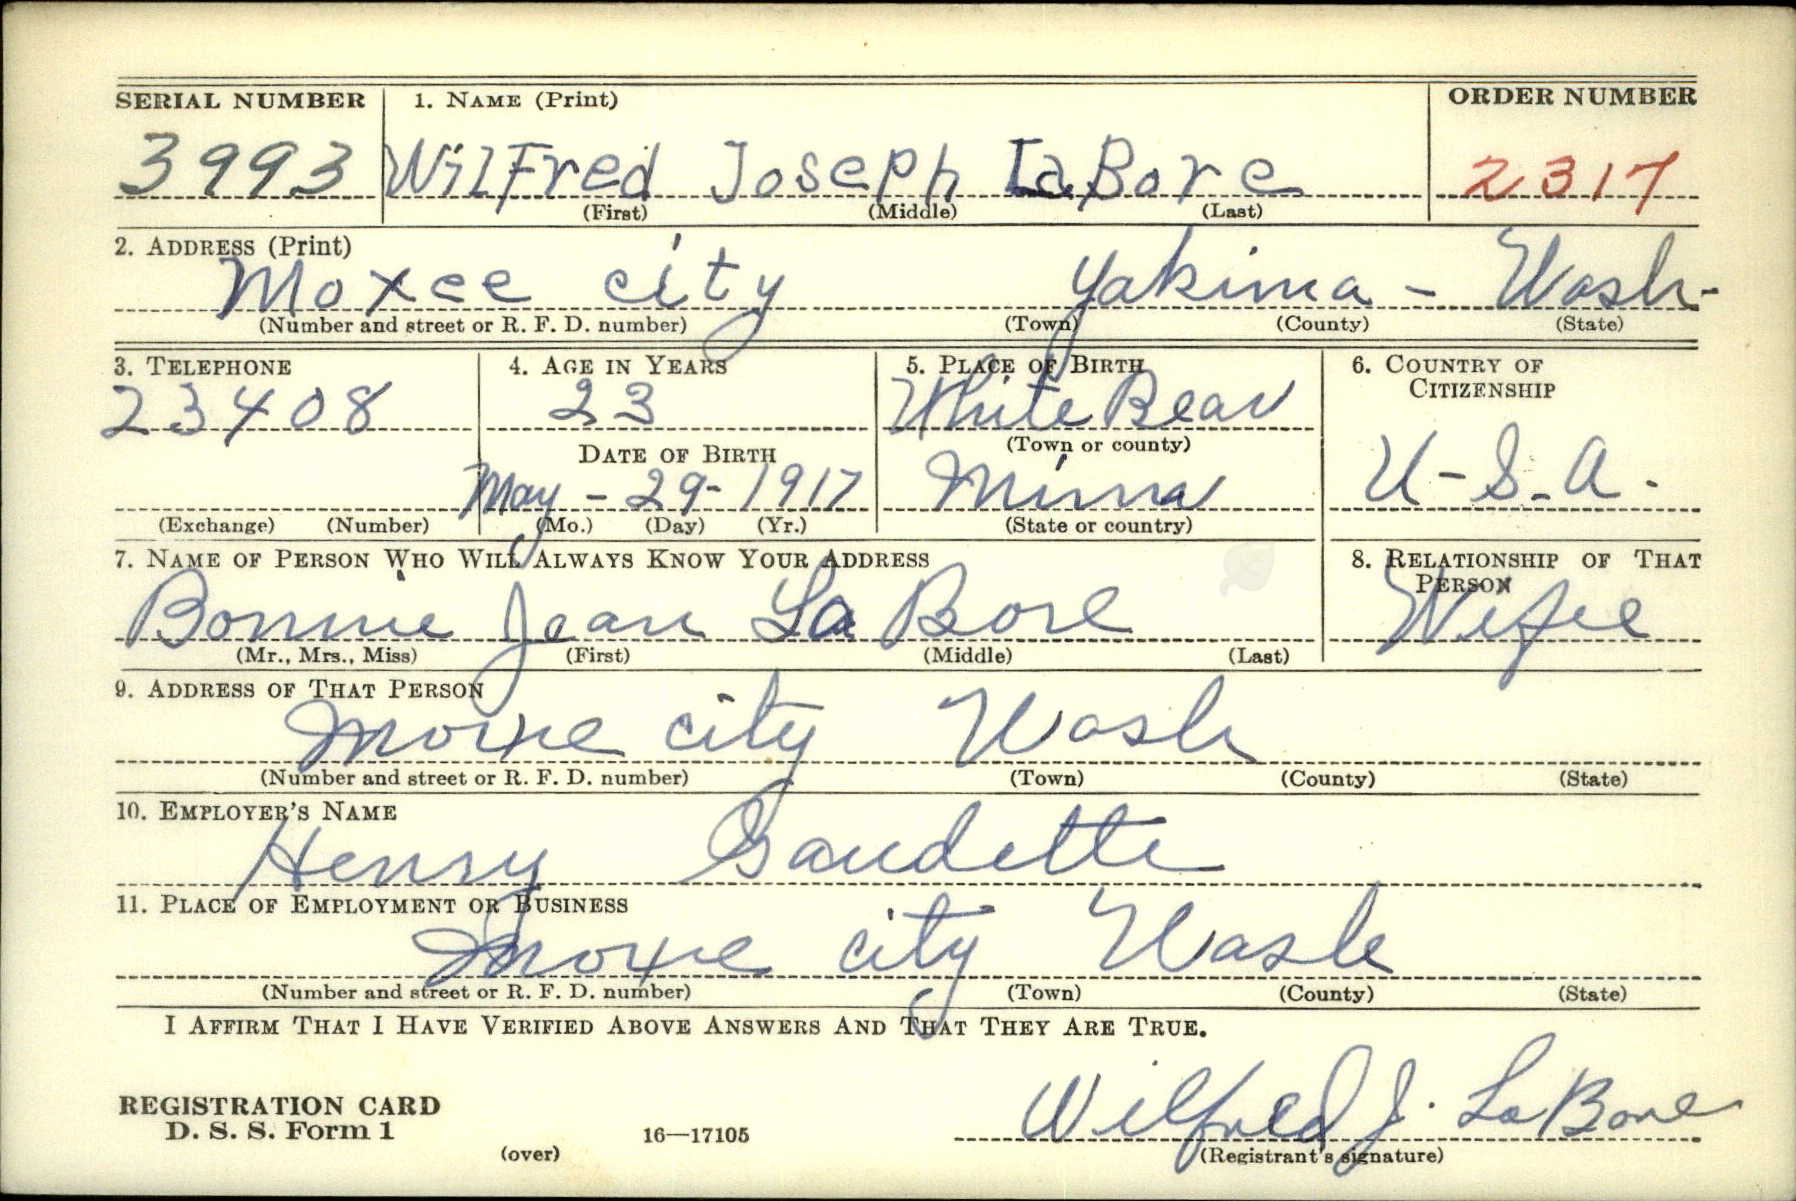 SERIAL NUMBER 1. NAME (Print) ORDER NUMBER
3993 Wilfred Joseph LaBore 2317
(First) (Middle) (Last)
2. ADDRESS (Print)
Moxee city Yakima - Wash-
(Number and street or R. F. D. number) (Town) (County) (State)
3. TELEPHONE 4. AGE IN YEARS 5. PLACE OF BIRTH 6. COUNTRY OF
CITIZENSHIP
23408 23 White Bear
DATE OF BIRTH (Town or county)
May - 29 - 1917 Minna U-S-A.
(Exchange) (Number) (Mo.) (Day) (Yr.) (State or country)
7. NAME OF PERSON WHO WILL ALWAYS KNOW YOUR ADDRESS 8. RELATIONSHIP OF THAT
PERSON
Bonnie Jean La Bore Wife
(Mr., Mrs., Miss) (First) (Middle) (Last)
9. ADDRESS OF THAT PERSON
Moxee city Wash
(Number and street or R. F. D. number) (Town) (County) (State)
10. EMPLOYER'S NAME
Henry Gaudette
11. PLACE OF EMPLOYMENT OR BUSINESS
Moxee city Wash
(Number and street or R. F. D. number) (Town) (County) (State)
I AFFIRM THAT I HAVE VERIFIED ABOVE ANSWERS AND THAT THEY ARE TRUE.
REGISTRATION CARD
D. S. S. Form 1 16—17105 Wilfred J. LaBore
(over) (Registrant's signature)